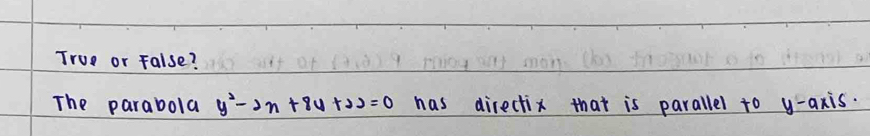 True or False?
The parabola y²-2x+8y+22=0 has directix that is parallel to y-axis.